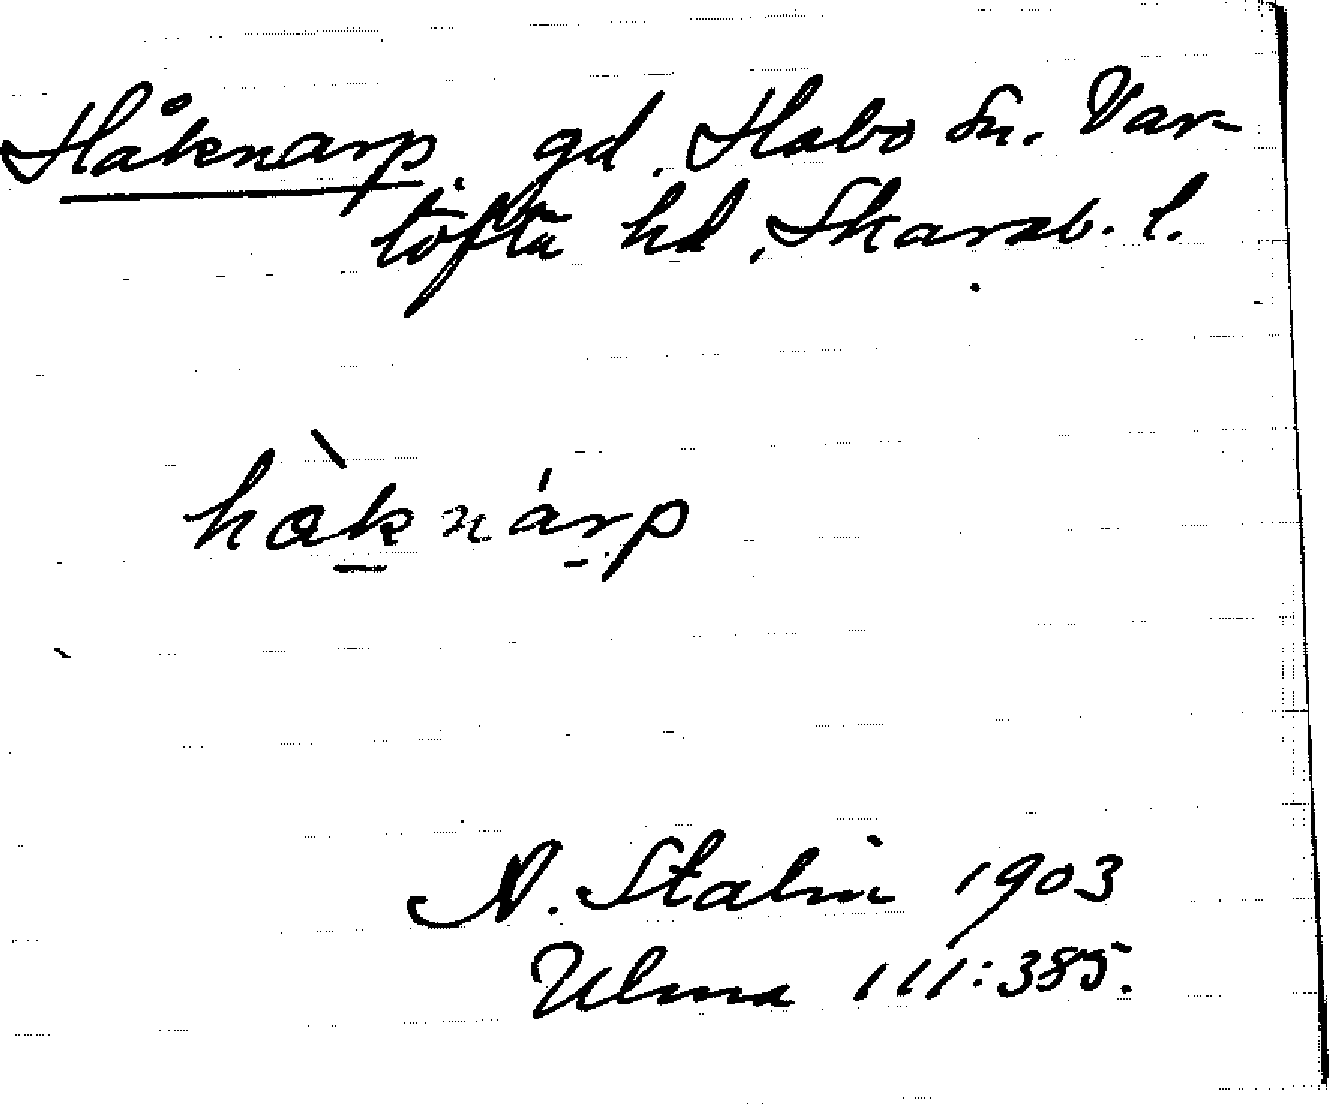 Håknarp, gd, Habo sn. Var-
töfta hd, Skarab. l.
hàknárp
N. Stalin 1903
Ulma 111:385.